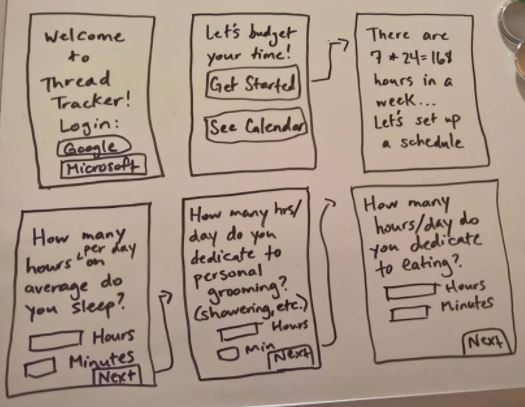 Welcome
to
Thread
Tracker!
Login:
Google
Microsoft
Let's budget
your time!
Get Started
See Calendar
There are
7 * 24 = 168
hours in a
week...
Let's set up
a schedule
How many
hours per day on
average do
you sleep?
Hours
Minutes
Next
How many hrs/
day do you
dedicate to
personal
grooming?
(showering, etc.)
Hours
Min
Next
How many
hours/day do
you dedicate
to eating?
Hours
Minutes
Next